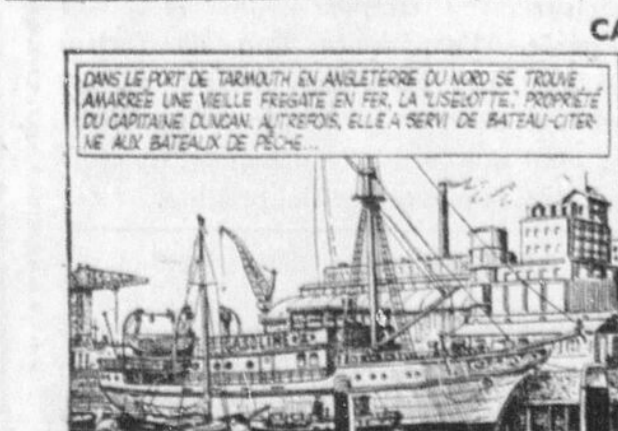 CA
DANS LE PORT DE TARMOUTH EN ANGLETERRE DU NORD SE TROUVE
AMARRÉE UNE VIEILLE FREGATE EN FER, LA "LISELOTTE", PROPRIÉTÉ
DU CAPITAINE DUNCAN. AUTREFOIS, ELLE A SERVI DE BATEAU-CITER-
NE AUX BATEAUX DE PÊCHE...
GASOLINE